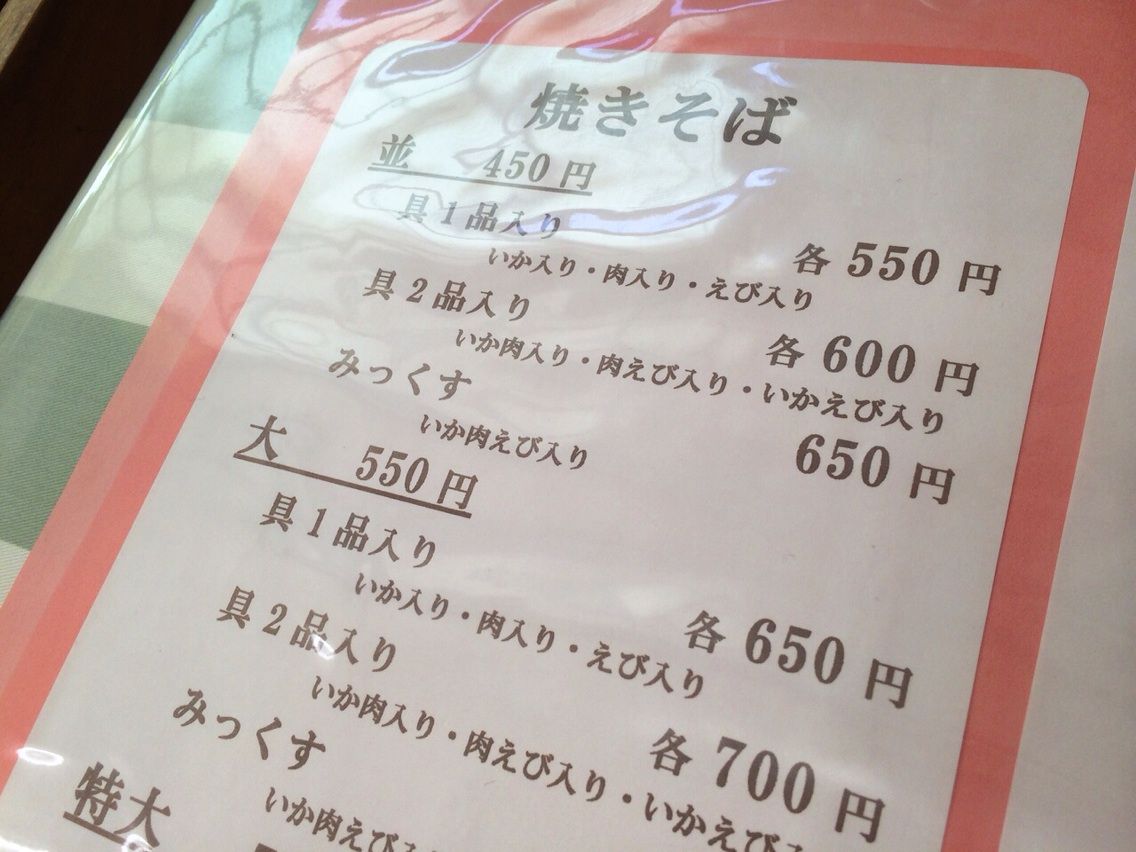 焼きそば
並 450円
具1品入り 各550円
いか入り・肉入り・えび入り
具2品入り 各600円
いか肉入り・肉えび入り・いかえび入り
みっくす 650円
いか肉えび入り
大 550円
具1品入り 各650円
いか入り・肉入り・えび入り
具2品入り 各700円
いか肉入り・肉えび入り・いかえび入
みっくす
いか肉えび
特大